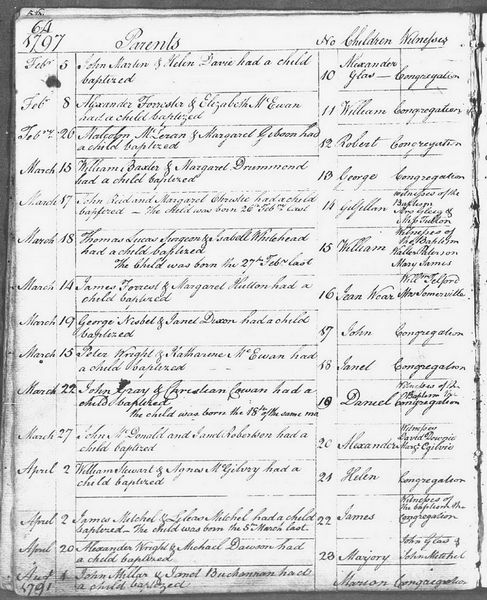 64
1797 Parents No Children Witnesses
Febr 5 John Martin & Helen Davie had a child
baptized 10 Alexander Glas — Congregation
Febr 8 Alexander Forrester & Elizabeth McEwan
had a child baptized 11 William Congregation
Febry 26 Malcolm McFeran & Margaret Gibson had
a child baptized 12 Robert Congregation
March 15 William Baxter & Margaret Drummond
had a child baptized 13 George Congregation
March 17 John Reid and Margaret Christie had a child
baptized — The child was born 26th Febry last 14 Gilfillan Witnesses of the
Baptism
Mrs Grieg &
Miss
March 18 Thomas Lucas Surgeon & Isabell Whitehead
had a child baptized 15 William Witnesses of
the Baptism
Walter Paterson
Mary James
The Child was born the 27th Febr last
March 14 James Forrest & Margaret Hutton had a
child baptized 16 Jean Wear Willm Telford
Mrs Somerville
March 19 George Nesbet & Janet Dixon had a child
baptized 17 John Congregation
March 15 Peter Wright & Katharine McEwan had
a child baptized 18 Janet Congregation
March 22 John Gray & Cirestian Cowan had a
child baptized 19 Daniel Witnesses of
Baptism
Congregation
the child was born the 18th of the same ma
March 27 John McDonald and Janet Robertson had a
child baptized 20 Alexander Witnesses
David Downie
Marg. Ogilvie
April 2 William Stewart & Agnes McGilvry had a
child baptized 21 Helen Congregation
April 2 James Mitchel & Lileas Mitchel had a child
baptized — The child was born the 5th March last 22 James Witnesses of
the baptism the
Congregation
April 20 Alexander Wright & Michael Dawson had
a child baptized 23 Marjory John Glas &
John Mitchel
Augt 1 John Millar & Janet Buchannan had
1791 a child baptized Marion Congregation